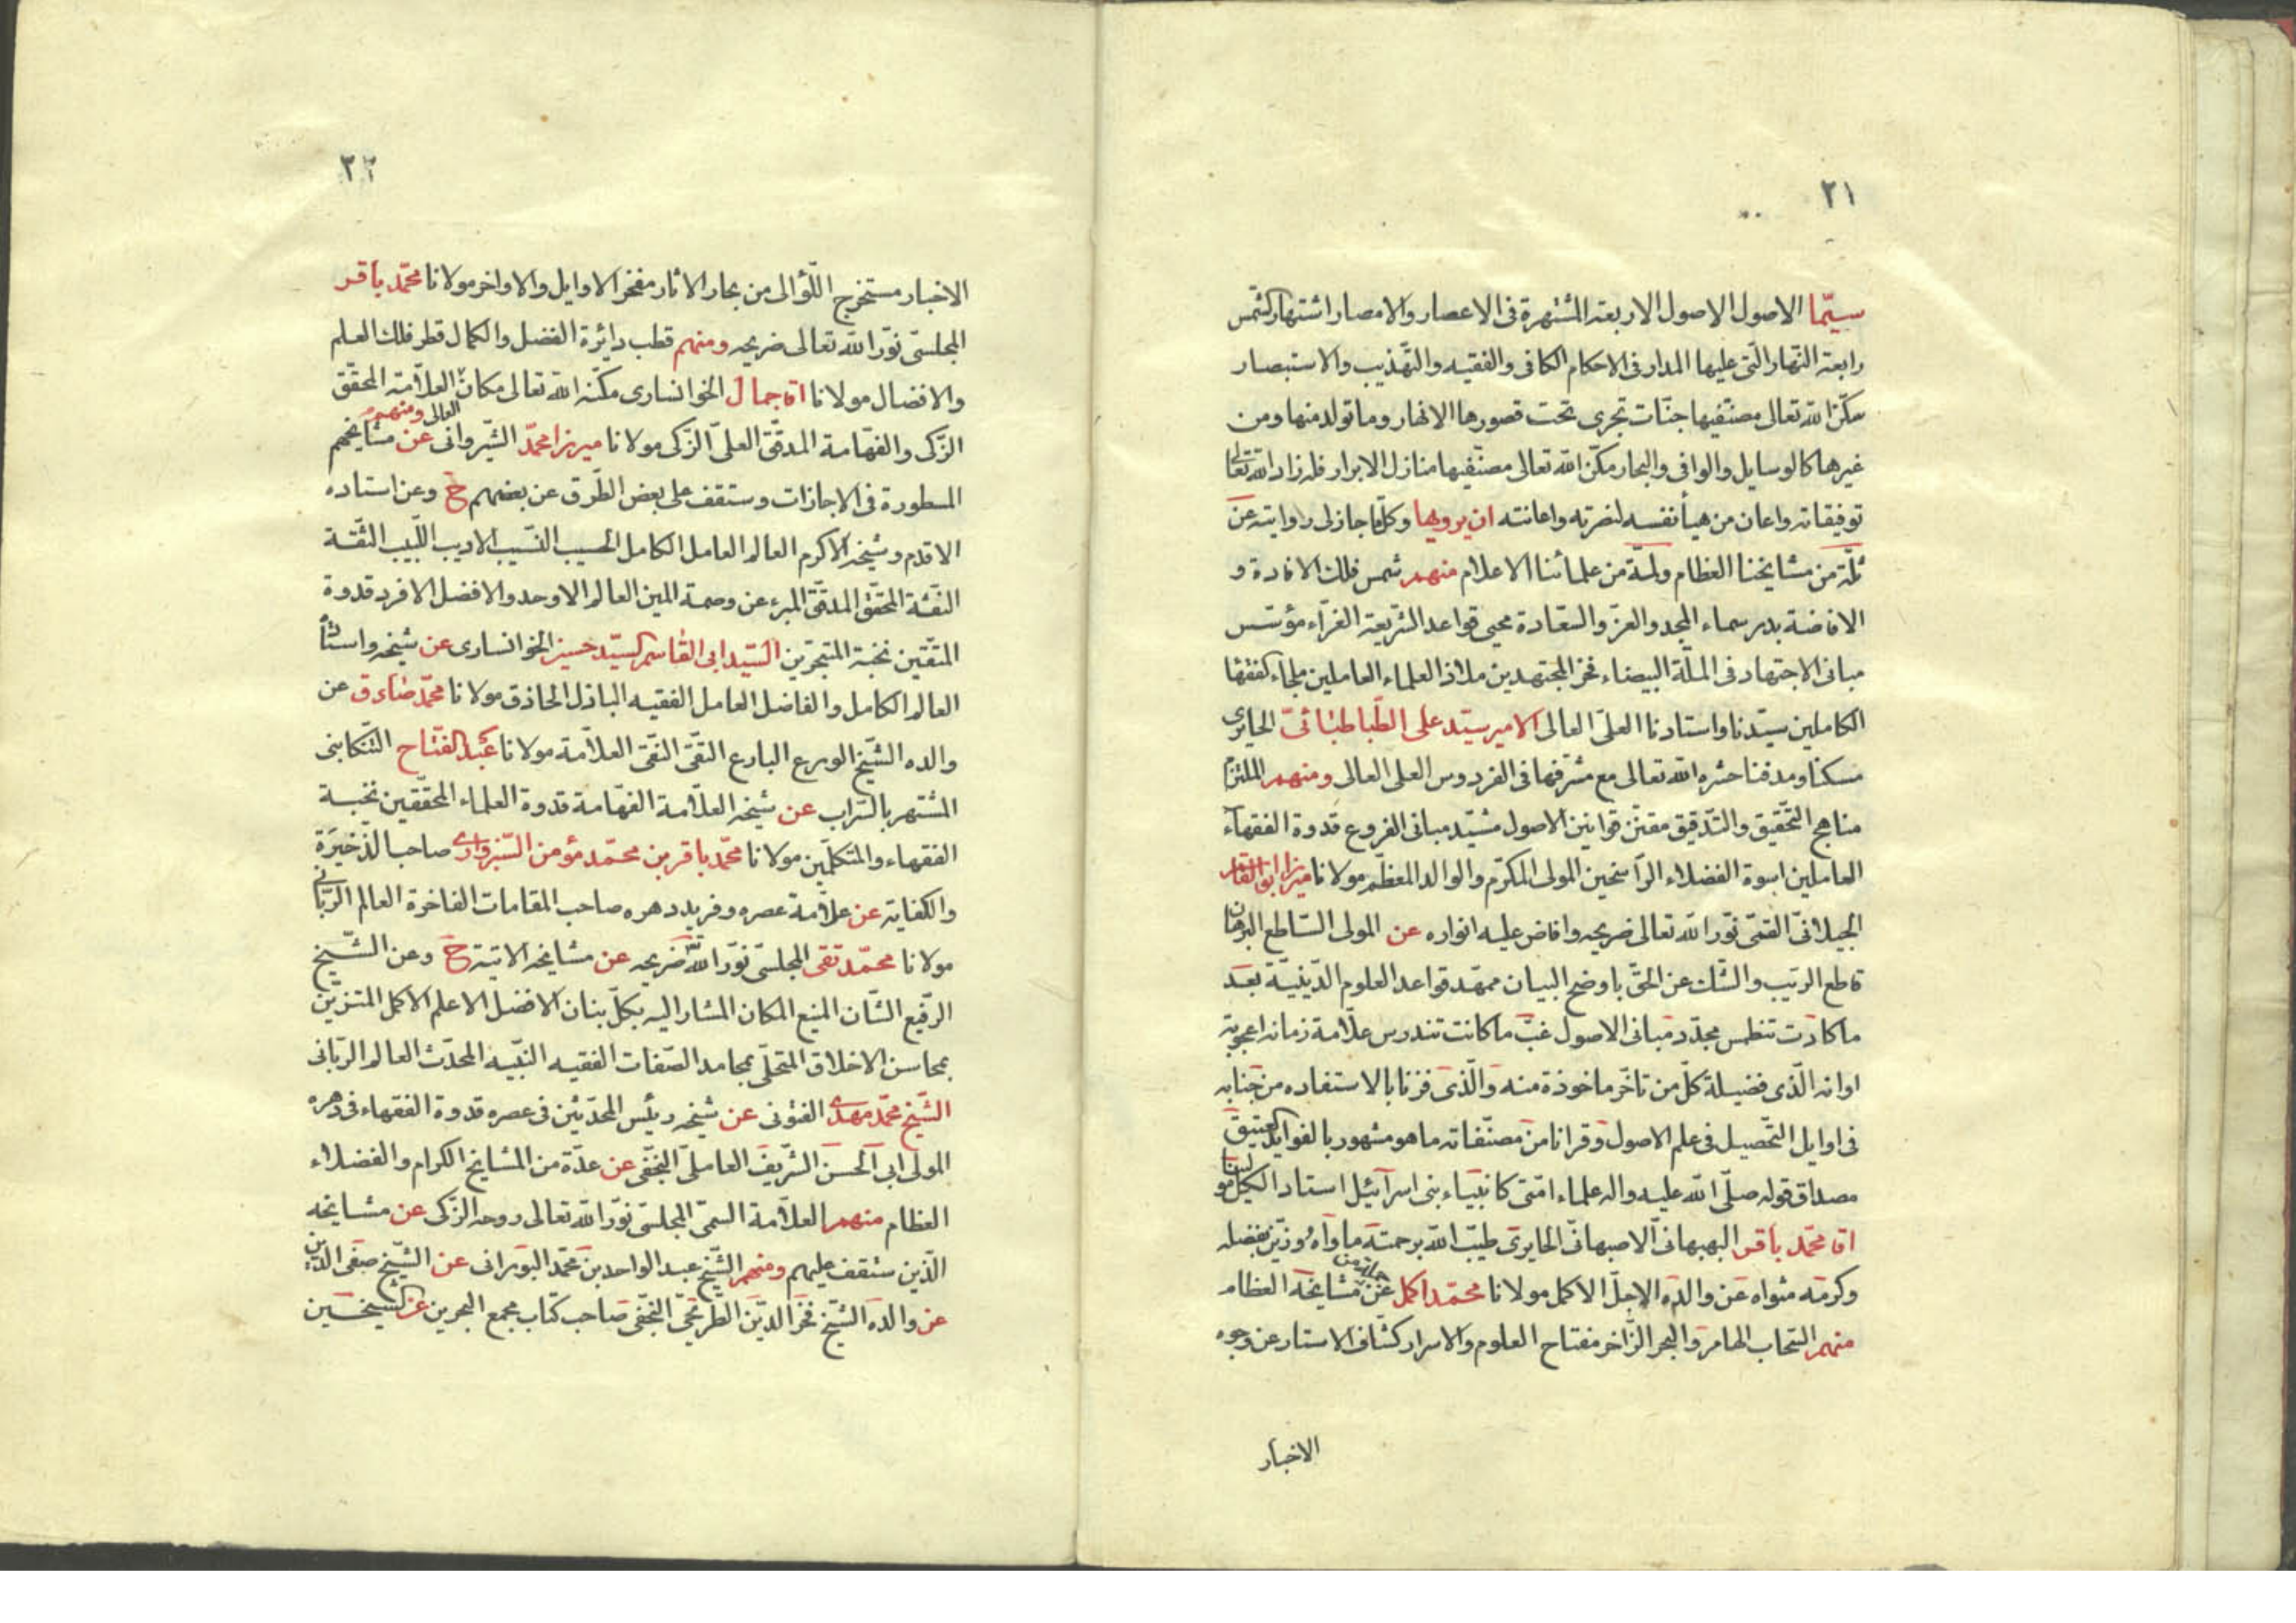 ٢١
سيّما الاصول الاصول الاربعة المشتهرة فى الاعصار والامصار اشتهار كشمس
رابعة النّهار الّتى عليها المدار فى الاحكام الكافى والفقيه والتّهذيب والاستبصار
سكّن الله تعالى مصنّفيها جنّات تجرى تحت قصورها الانهار وما تولد منها ومن
غيرها كالوسايل والوافى والبحار مكّن الله تعالى مصنّفيها منازل الابرار فله زاد الله تعالى
توفيقاته واعان من هيأ نفسه لنصرته واعانته ان يرويها وكلّما جاز لى روايته عن
ثلّة من مشايخنا العظام ولمّة من علمائنا الاعلام منهم شمس فلك الافادة و
الافاضة بدر سماء المجد والعز والسّعادة محيى قواعد الشّريعة الغرّاء مؤسّس
مبانى الاجتهاد فى الملّة البيضاء فخر المجتهدين ملاذ العلماء العاملين ملجاء الفقهاء
الكاملين سيّدنا واستادنا العلىّ العالى الامير سيّد على الطّباطبائىّ الحايرى
مسكنا ومدفنا حشره الله تعالى مع مشرّفها فى الفردوس العلى العالى ومنهم الملتزم
مناهج التّحقيق والتّدقيق مقنّن قوانين الاصول مشيّد مبانى الفروع قدوة الفقهآء
العاملين اسوة الفضلاء الرّاسخين المولى المكرّم والوالد المعظّم مولانا ميرزا ابو القاسم
الجيلانىّ القمّى نوّر الله تعالى ضريحه وافاض عليه انواره عن المولى السّاطع البرهان
قاطع الريب والشّك عن الحقّ باوضح البيان ممهّد قواعد العلوم الدّينيّة بعد
ما كادت تنطمس مجدّد مبانى الاصول غبّ ما كانت تندرس علاّمة زمانه اعجوبة
اوانه الّذى فضيلة كلّ من تاخّر ماخوذة منه والّذى فزنا بالاستفاده من جنابه
فى اوايل التّحصيل فى علم الاصول وقرانا من مصنّفاته ما هو مشهور بالفوايد العتيق
مصداق قوله صلّى الله عليه واله علماء امّتى كانبياء بنى اسرآئيل استاد الكلّ مولينا
اقا محمّد باقر البهبهانىّ الاصبهانىّ الحايرى طيّب الله برحمته ماواه وزيّن بفضله
وكرمه مثواه عن والده الاجلّ الاكمل مولانا محمّد اكمل عن جملة من مشايخه العظام
منهم السّحاب الهامر والبحر الزّاخر مفتاح العلوم والاسرار كشّاف الاستار عن وجوه
الاخبار
٢٢
الاخبار مستخرج اللّؤالى من بحار الاثار مفخر الاوايل والاواخر مولانا محمّد باقر
المجلسىّ نوّر الله تعالى ضريحه ومنهم قطب دايرة الفضل والكمال قطر فلك العلم
والافضال مولانا اقا جمال الخوانسارى مكّنه الله تعالى مكانه العلاّمة المحقّق
العالى ومنهم
الزّكى والفهّامة المدقّق العلىّ الزّكى مولانا ميرزا محمّد الشّيروانى عن مشايخهم
المسطورة فى الاجازات وستقف على بعض الطّرق عن بعضهم ح وعن استاده
الاقدم وشيخه الاكرم العالم العامل الكامل الحسيب النّسيب الاديب اللّبيب الثّقة
الثقة المحقّق المدقّق المبرء عن وصمة المين العالم الاوحد والافضل الافرد قدوة
المتّقين نخبة المتبحّرين السّيد ابى القاسم السّيد حسين الخوانسارى عن شيخه واستاده
العالم الكامل والفاضل العامل الفقيه الباذل الحاذق مولانا محمّد صادق عن
والده الشّيخ الورع البارع التّقى النّقى العلاّمة مولانا عبد الفتّاح التّنكابنى
المشتهر بالسّراب عن شيخه العلاّمة الفهّامة قدوة العلماء المحقّقين نخبة
الفقهاء والمتكلّمين مولانا محمّد باقر بن محمّد مؤمن السّبزوارى صاحب الذّخيرة
والكفاية عن علاّمة عصره وفريد دهره صاحب المقامات الفاخرة العالم الرّبانى
مولانا محمّد تقى المجلسى نوّر الله ضريحه عن مشايخه الاتية ح وعن الشّيخ
الرّفيع الشّان المنيع المكان المشار اليه بكلّ بنان الافضل الاعلم الاكمل المتزيّن
بمحاسن الاخلاق المتحلّى بمحامد الصّفات الفقيه النّبيه المحدّث العالم الرّبانى
الشّيخ محمّد مهدى الفتونى عن شيخه رئيس المحدّثين فى عصره قدوة الفقهاء فى دهره
المولى ابى الحسن الشّريف العاملىّ النّجفى عن عدّة من المشايخ الكرام والفضلاء
العظام منهم العلاّمة السمىّ المجلسىّ نوّر الله تعالى روحه الزّكى عن مشايخه
الّذين ستقف عليهم ومنهم الشّيخ عبد الواحد بن محمّد البورانى عن الشّيخ صفى الدّين
عن والده الشّيخ فخر الدّين الطّريحىّ النّجفى صاحب كتاب مجمع البحرين عن الشيخ حسين